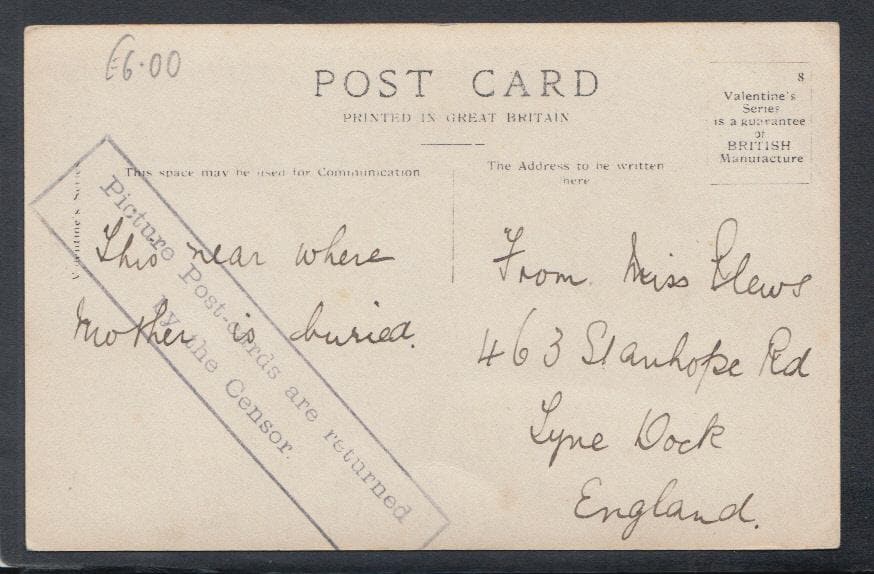 £6.00
POST CARD
PRINTED IN GREAT BRITAIN
8
Valentine's
Series
is a guarantee
of
BRITISH
Manufacture
This space may be used for Communication
The Address to be written
here
Valentine's Series
Picture Post-cards are returned
by the Censor.
This near where
Mother is buried.
From Miss Plews
463 Stanhope Rd
Tyne Dock
England.